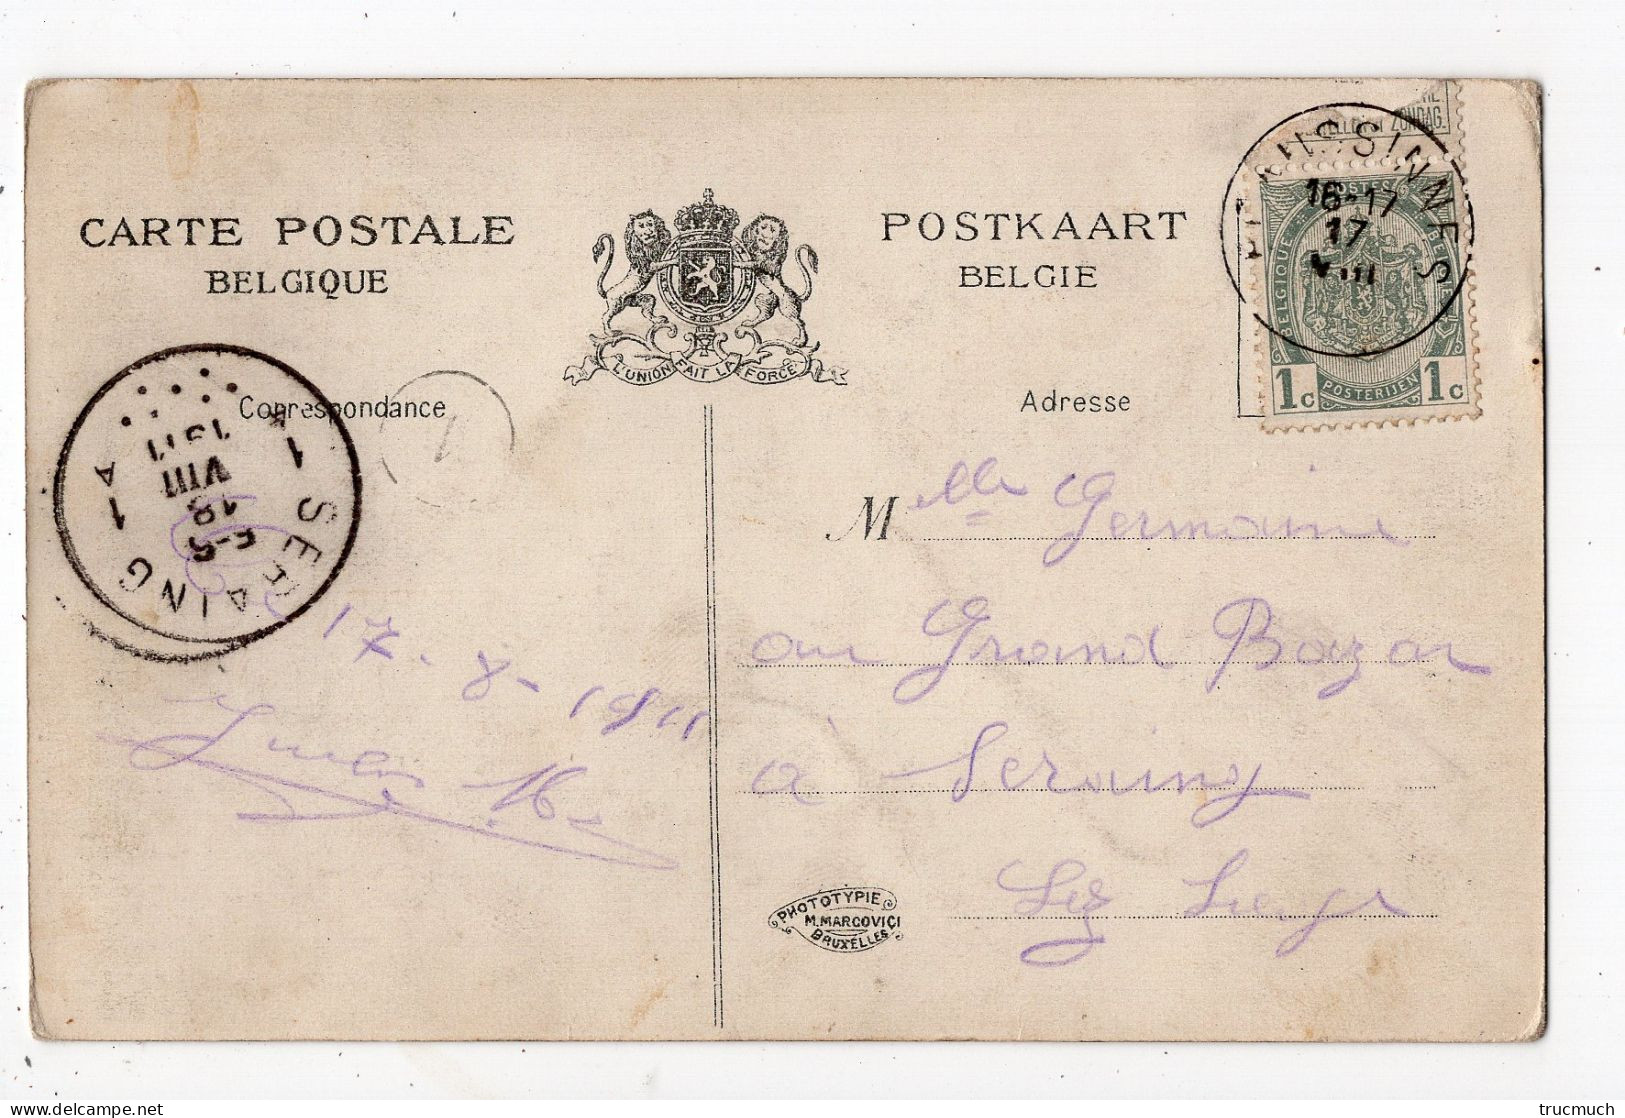 CARTE POSTALE
BELGIQUE
POSTKAART
BELGIE
L'UNION FAIT LA FORCE
Correspondance
Adresse
ZONDAG.
16-17
17
VIII
BELGIQUE
POSTES
BELGIË
1c POSTERIJEN 1c
1 SERAING 1
A
5-6
18
VIII
1911
1
17-8-1911
Mlle Germaine
au Grand Bazar
à Seraing
Lez Liege
PHOTOTYPIE
M. MARCOVICI
BRUXELLES
trucmuch - delcampe.net